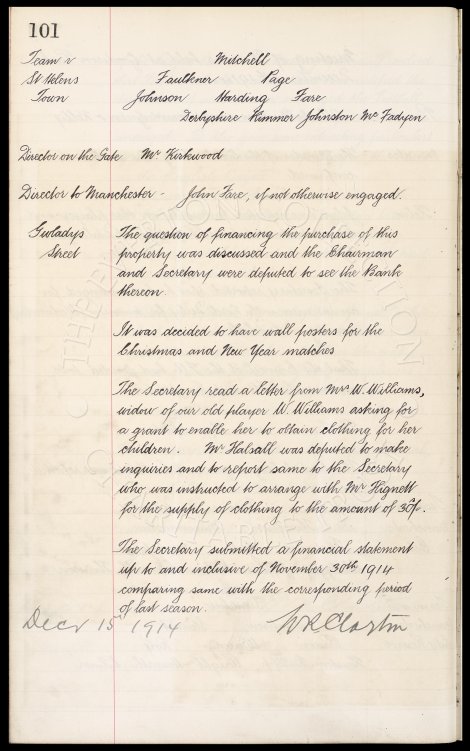 101
Team v Mitchell
St Helens Faulkner Page
Town Johnson Harding Fare
Derbyshire Kimmer Johnston McFadyen
Director on the Gate Mr Kirkwood
Director to Manchester - John Fare, if not otherwise engaged.
Gwladys The question of financing the purchase of this
Street property was discussed and the Chairman
and Secretary were deputed to see the Bank
thereon
It was decided to have wall posters for the
Christmas and New Year matches
The Secretary read a letter from Mrs W. Williams,
widow of our old player W. Williams asking for
a grant to enable her to obtain clothing for her
children. Mr Halsall was deputed to make
inquiries and to report same to the Secretary
who was instructed to arrange with Mr Hignett
for the supply of clothing to the amount of 30/-.
The Secretary submitted a financial statement
up to and inclusive of November 30th 1914
comparing same with the corresponding period
of last season.
Decr 15 1914 W R Clayton